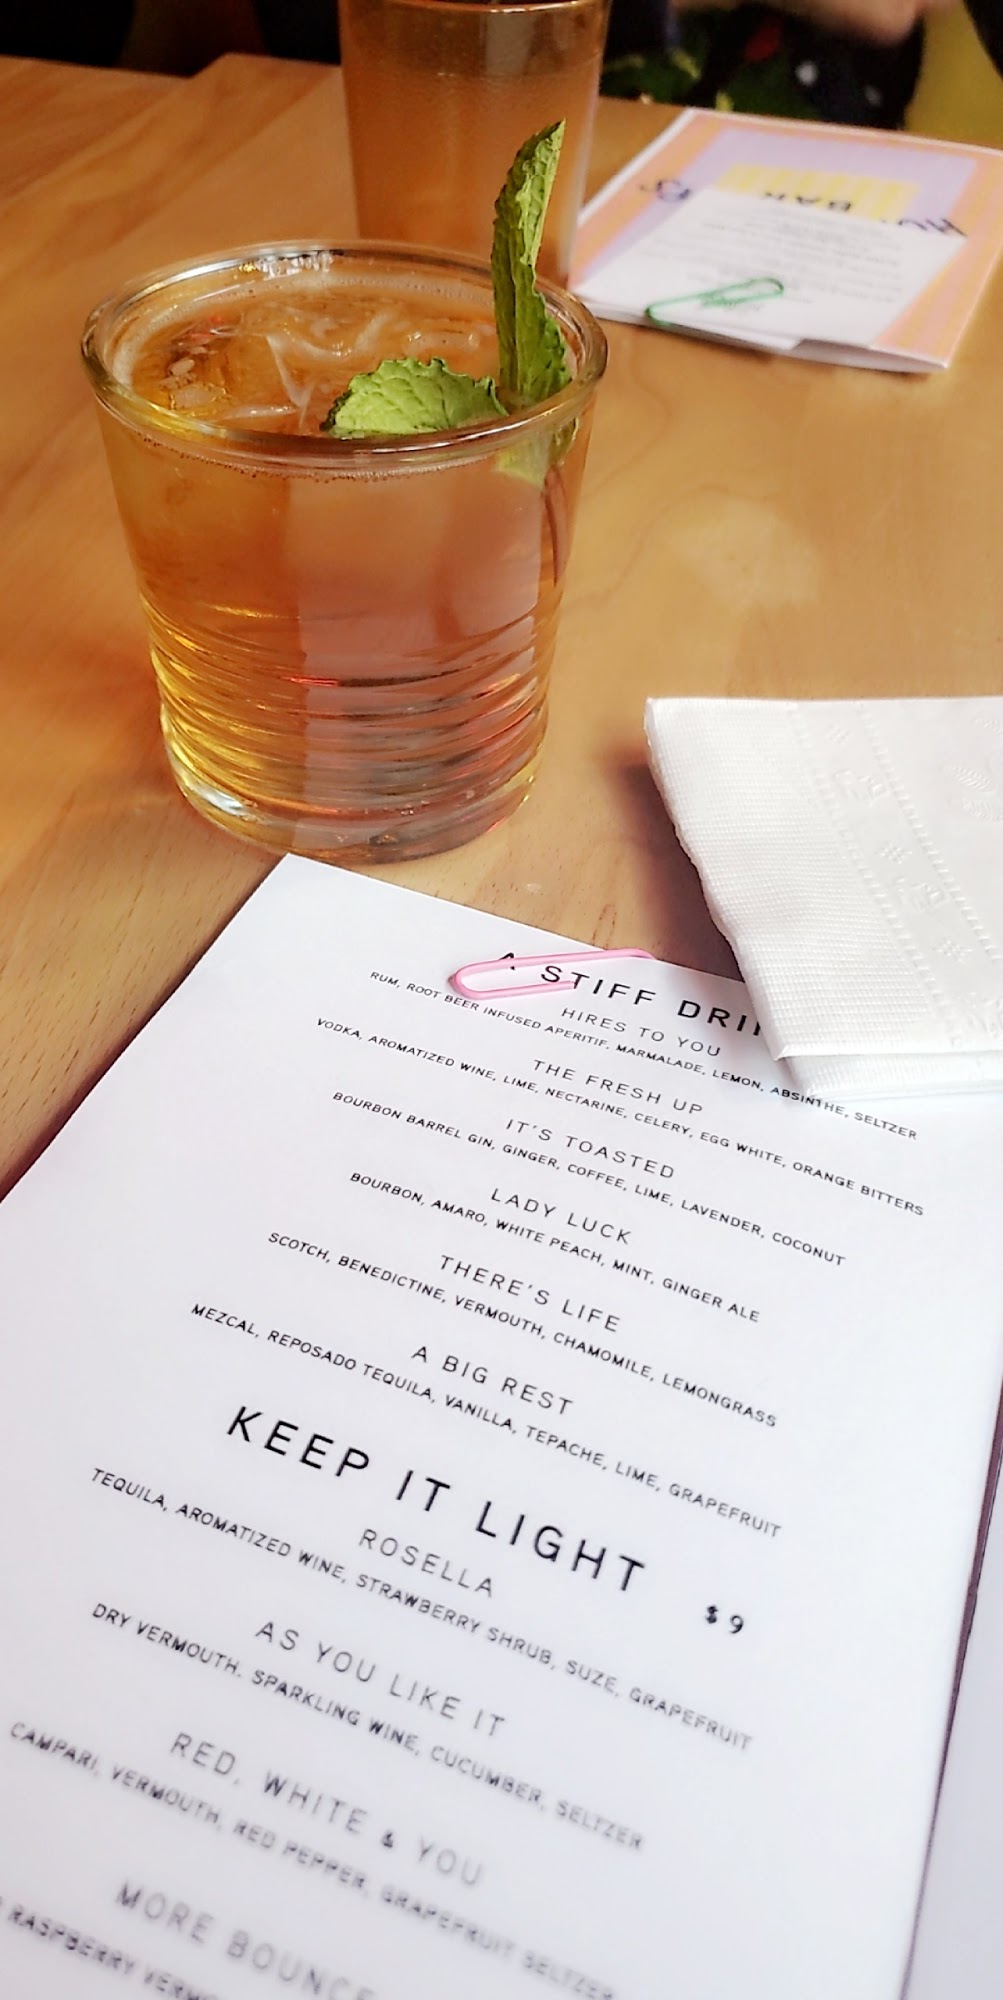 A STIFF DRI
HIRES TO YOU
RUM, ROOT BEER INFUSED APERITIF, MARMALADE, LEMON, ABSINTHE, SELTZER
THE FRESH UP
VODKA, AROMATIZED WINE, LIME, NECTARINE, CELERY, EGG WHITE, ORANGE BITTERS
IT'S TOASTED
BOURBON BARREL GIN, GINGER, COFFEE, LIME, LAVENDER, COCONUT
LADY LUCK
BOURBON, AMARO, WHITE PEACH, MINT, GINGER ALE
THERE'S LIFE
SCOTCH, BENEDICTINE, VERMOUTH, CHAMOMILE, LEMONGRASS
A BIG REST
MEZCAL, REPOSADO TEQUILA, VANILLA, TEPACHE, LIME, GRAPEFRUIT
KEEP IT LIGHT $9
ROSELLA
TEQUILA, AROMATIZED WINE, STRAWBERRY SHRUB, SUZE, GRAPEFRUIT
AS YOU LIKE IT
DRY VERMOUTH, SPARKLING WINE, CUCUMBER, SELTZER
RED, WHITE & YOU
CAMPARI, VERMOUTH, RED PEPPER, GRAPEFRUIT SELTZER
MORE BOUNCE
RASPBERRY VERM
BAR